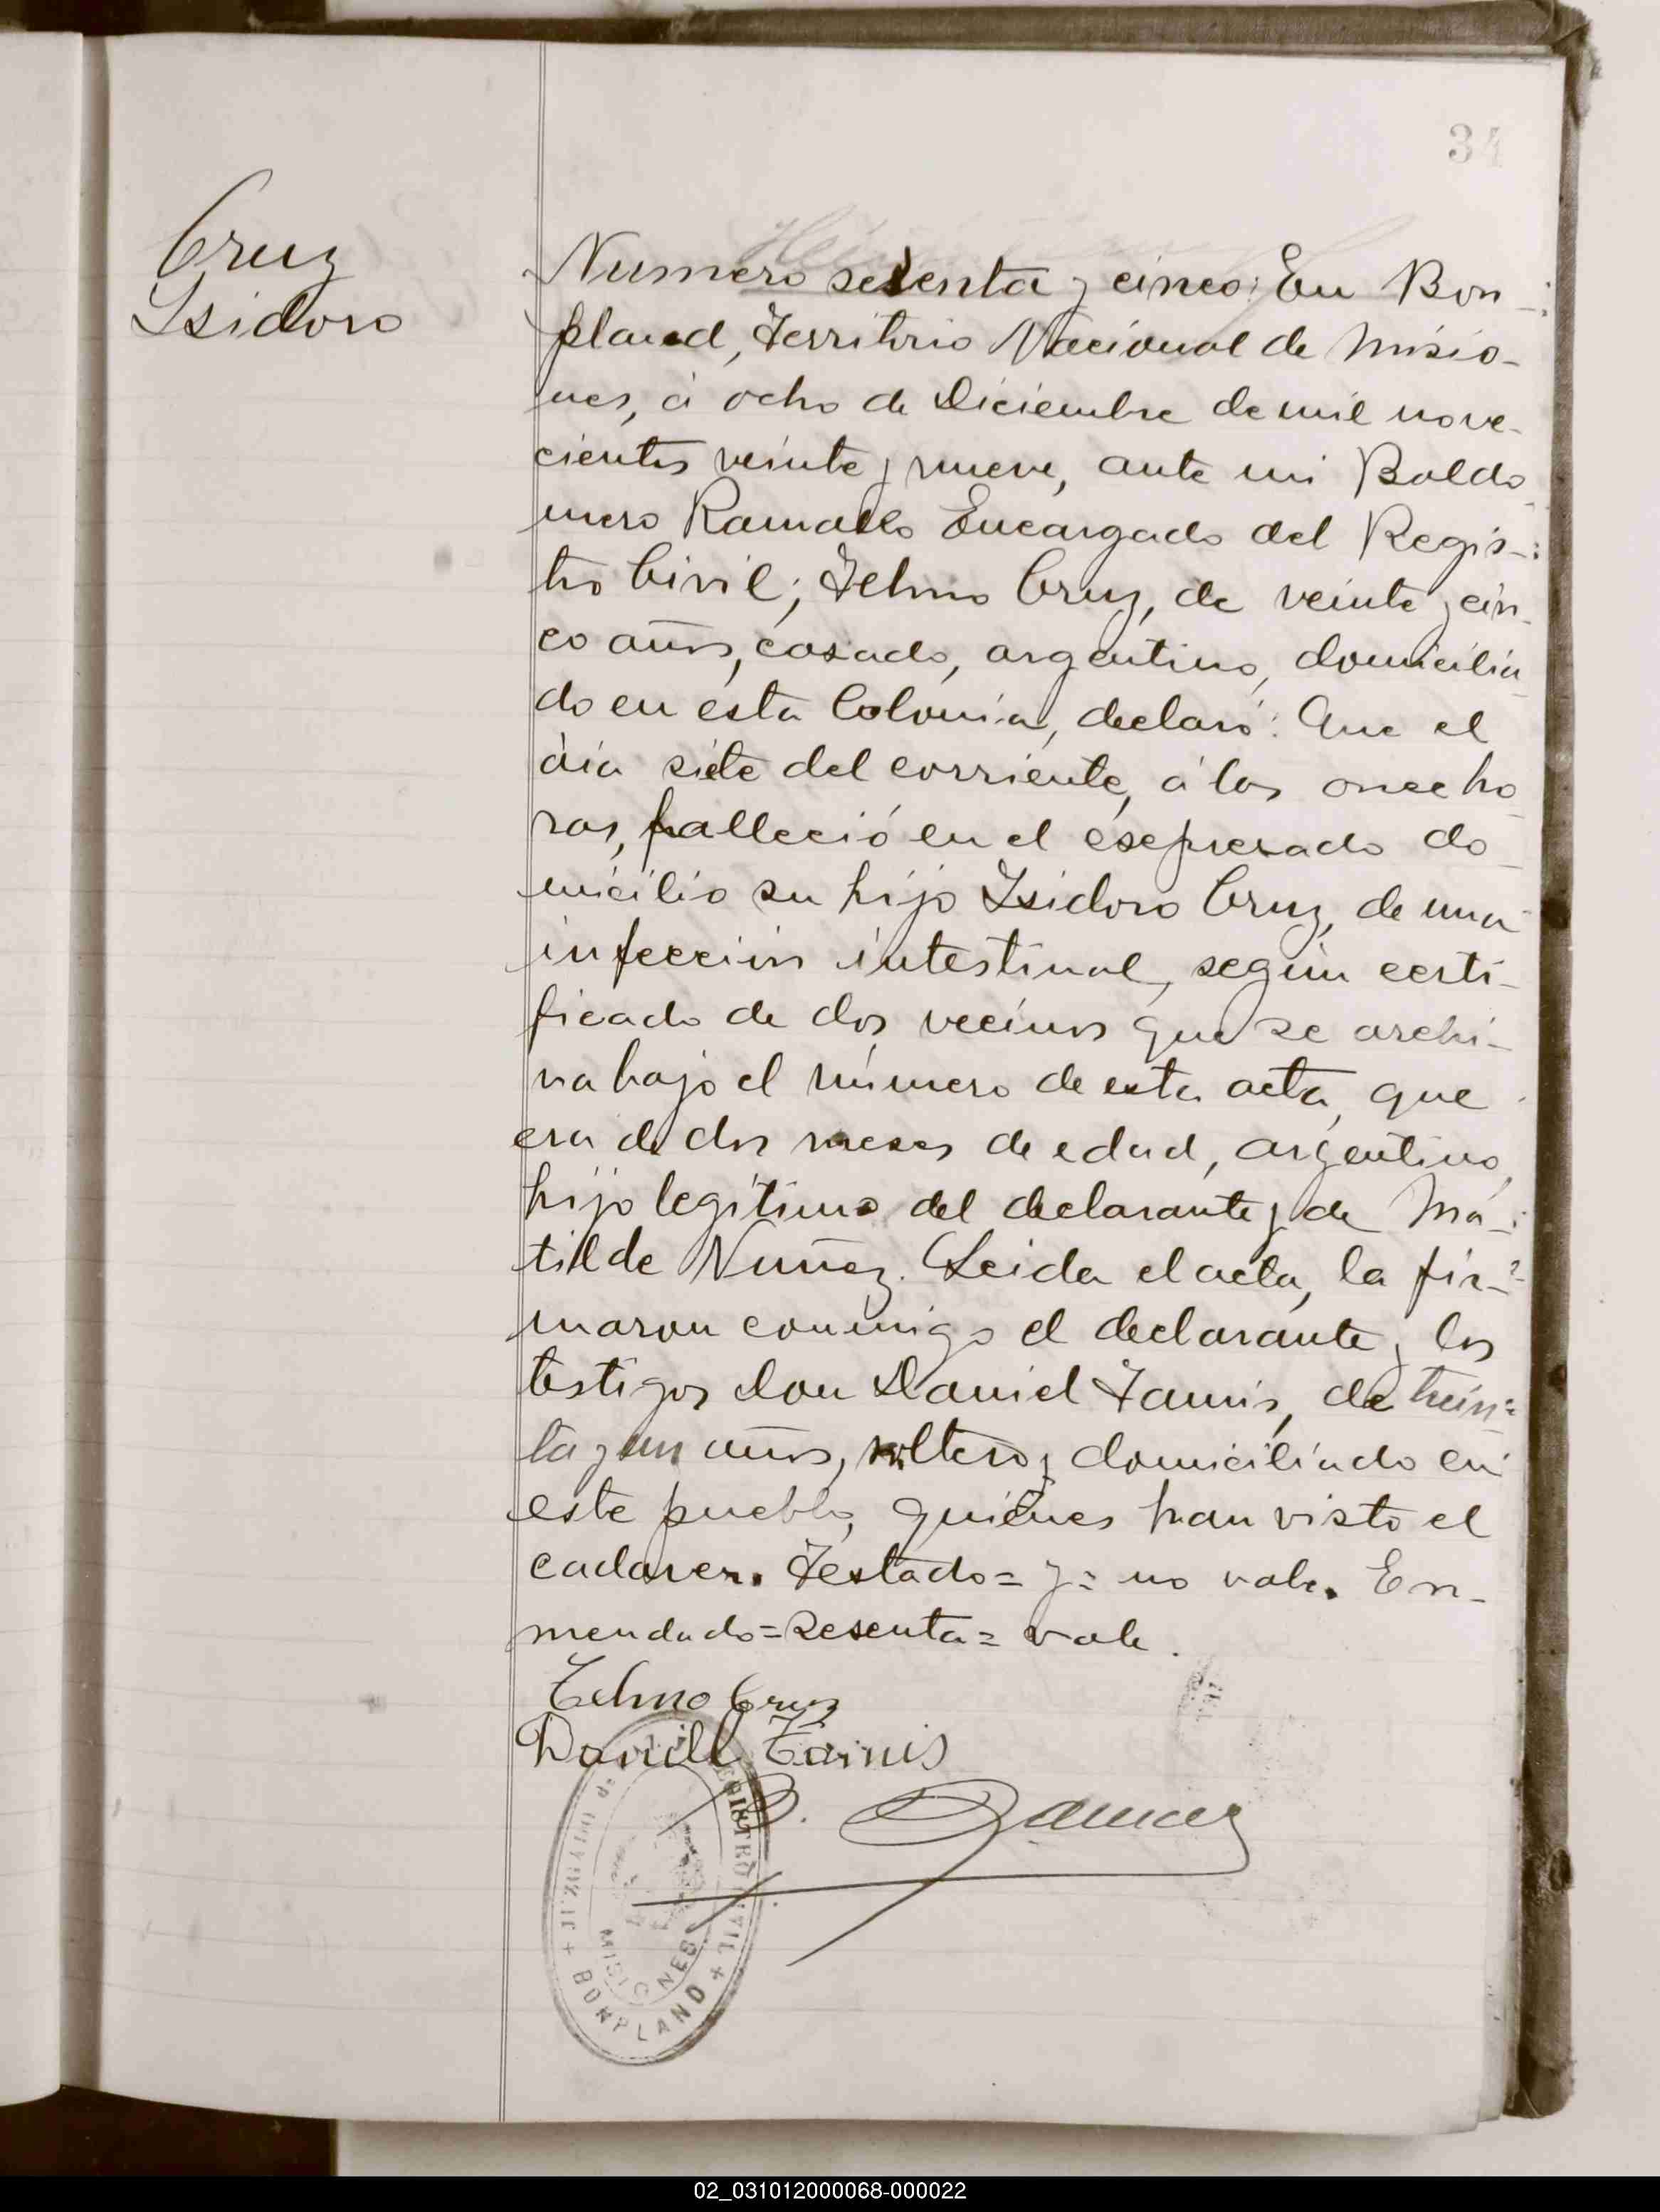 34
Cruz
Isidoro
Numero sesenta y cinco: En Bon-
pland, Territorio Nacional de Misio-
nes, á ocho de Diciembre de mil nove-
cientos veinte y nueve, ante mi Baldo-
mero Ramallo Encargado del Regis-
tro Civil; Telmo Cruz, de veinte y cin-
co años, casado, argentino, domicilia-
do en esta Colonia, declaró: Que el
dia siete del corriente, á las once ho-
ras, falleció en el esepresado do-
micilio su hijo Isidoro Cruz, de una
infeccion intestinal, según certi-
ficado de dos vecinos que se archi-
va bajo el número de esta acta, que
era de dos meses de edad, argentino,
hijo legítimo del declarante y de Ma-
tilde Nuñez. Leida el acta, la fir-
maron conmigo el declarante y los
testigos don Daniel Tannis, de trein-
ta y un años, soltero y domiciliado en
este pueblo, quiénes han visto el
cadaver. Testado= y= no vale. En-
mendado=sesenta= vale.
Telmo Cruz
Daniel
REGISTRO CIVIL + BONPLAND +
MISIONES
02_031012000068-000022